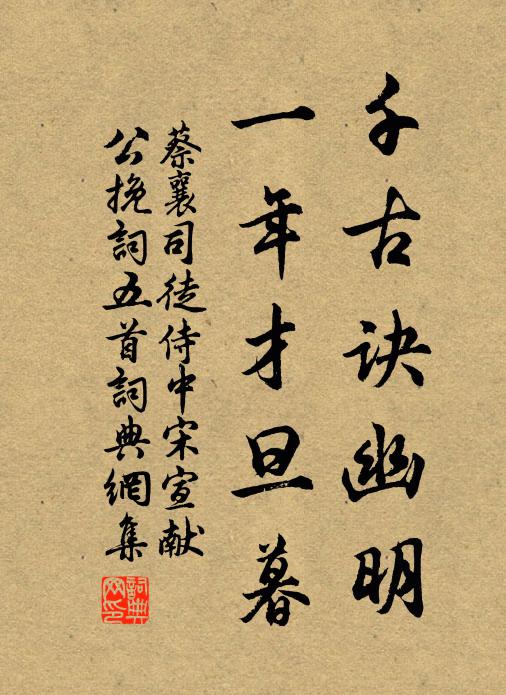 千古诀幽明
一年才旦暮
蔡襄司徒侍中宋宣献
公挽詞五首詞典網集
詞典
网印